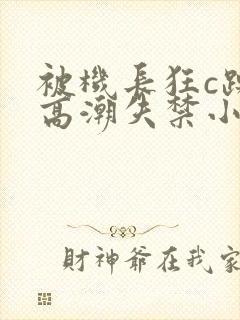 被機長狂c
高潮失禁小
財神爺在我家